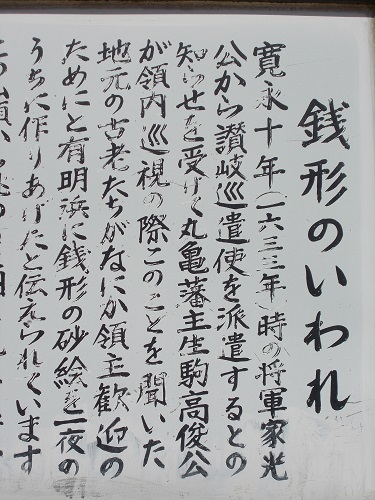 銭形のいわれ
寛永十年(一六三三年)時の将軍家光
公から讃岐巡遣使を派遣するとの
知らせを受けて丸亀藩主生駒高俊公
が領内巡視の際このことを聞いた
地元の古老たちがなにか領主歓迎の
ためにと有明浜に銭形の砂絵を一夜の
うちに作りあげたと伝えられています